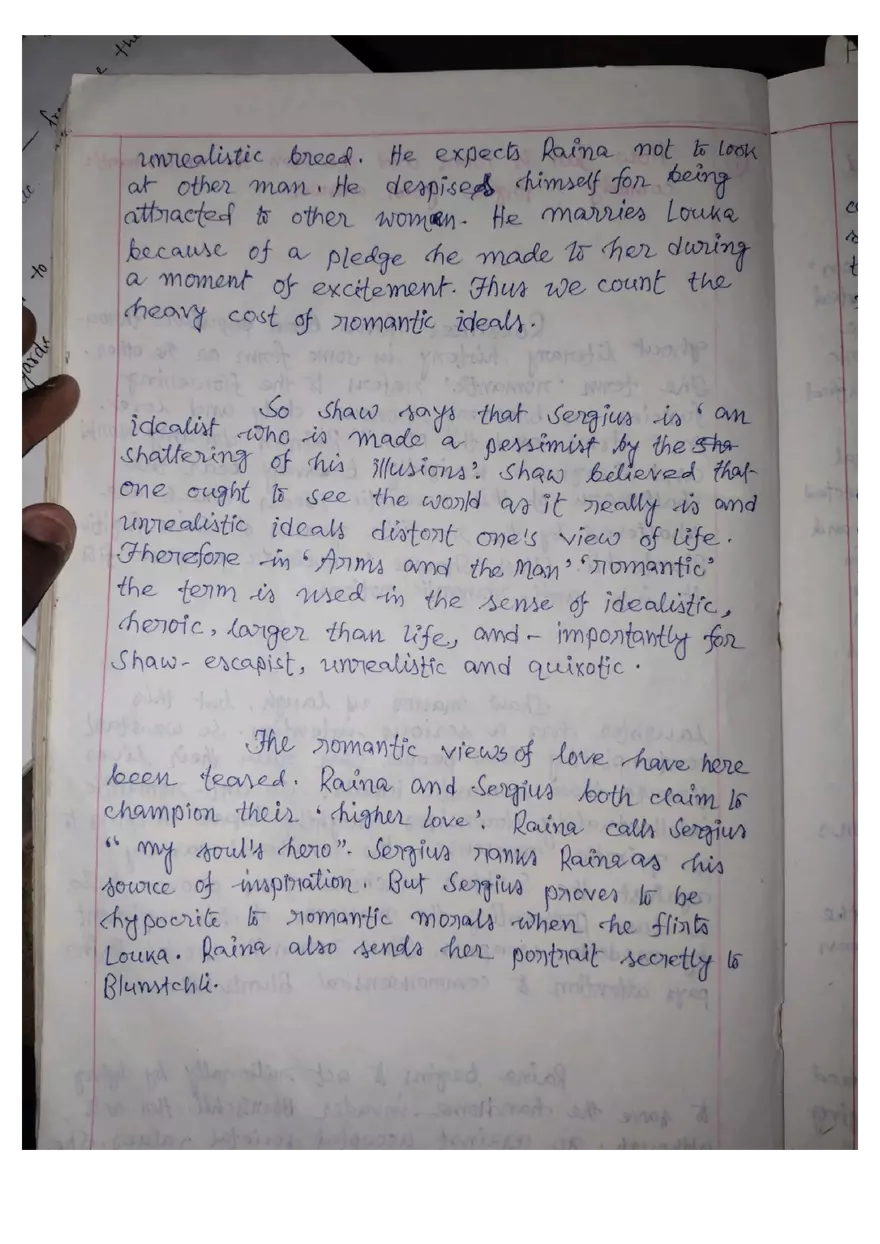 unrealistic breed. He expects Raina not to look
at other man. He despises himself for being
attracted to other woman. He marries Louka
because of a pledge he made to her during
a moment of excitement. Thus we count the
heavy cost of romantic ideals.
So Shaw says that Sergius is 'an
idealist who is made a pessimist by the sha
shattering of his illusions'. Shaw believed that
one ought to see the world as it really is and
unrealistic ideals distort one's view of life.
Therefore in 'Arms and the Man' 'romantic'
the term is used in the sense of idealistic,
heroic, larger than life, and - importantly for
Shaw - escapist, unrealistic and quixotic.
The romantic views of love have here
been teased. Raina and Sergius both claim to
champion their 'higher love'. Raina calls Sergius
"my soul's hero". Sergius ranks Raina as his
source of inspiration. But Sergius proves to be
hypocrite to romantic morals when he flirts
Louka. Raina also sends her portrait secretly to
Blunstchli.